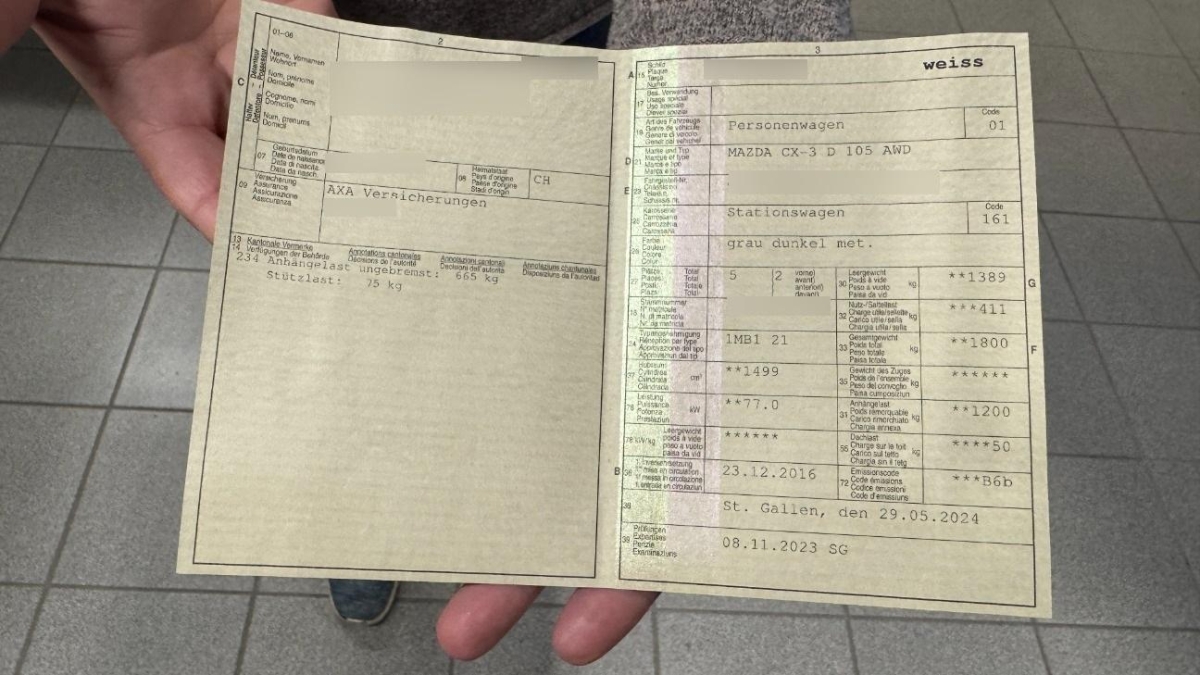 2
01-06
C
Halter - Détenteur
Detentore - Possessur
Name, Vornamen
Wohnort
Nom, prénoms
Domicile
Cognome, nomi
Domicilio
Num, prenums
Domicil
07
Geburtsdatum
Date de naissance
Data di nascita
Data da nasch.
08
Heimatstaat
Pays d'origine
Paese d'origine
Stadi d'origin
CH
09
Versicherung
Assurance
Assicurazione
Assicuranza
AXA Versicherungen
13 Kantonale Vermerke
14 Verfügungen der Behörde
Annotations cantonales
Décisions de l'autorité
Annotazioni cantonali
Decisioni dell'autorità
Annotaziuns chantunalas
Disposiziuns da l'autoritad
234 Anhängelast ungebremst: 665 kg
Stützlast: 75 kg
3
A 15
Schild
Plaque
Targa
Numer
weiss
17
Bes. Verwendung
Usage spécial
Uso speciale
Diever spezial
Art des Fahrzeugs
Genre de véhicule
Genere di veicolo
Gener dal vehichel
Personenwagen
Code
01
D 21
Marke und Typ
Marque et type
Marca e tipo
Marca e tip
MAZDA CX-3 D 105 AWD
E 23
Fahrgestell-Nr.
Karosserie
Carrosserie
Carrozzeria
Carossaria
Stationswagen
Code
161
26
Farbe
Couleur
Colore
Colur
grau dunkel met.
27
Plätze Total
Places Total
Posti Totale
Plazs Total
5
2
vorne)
avant)
anteriori)
davant)
30
Leergewicht
Poids à vide
Peso a vuoto
Paisa da vid
kg
**1389
G
18
Stammnummer
N° matricule
N. di matricola
Nr. da matricla
32
Nutz-/Sattellast
Charge utile/sellette
Carico utile/sella
Chargia utila/sella
kg
***411
24
Typengenehmigung
Réception par type
Approvazione del tipo
Approvaziun dal tip
1MB1 21
33
Gesamtgewicht
Poids total
Peso totale
Paisa totala
kg
**1800
F
37
Hubraum
Cylindrée
Cilindrata
Cilindrada
cm³
**1499
35
Gewicht des Zuges
Poids de l'ensemble
Peso del convoglio
Paisa cumposiziun
kg
******
76
Leistung
Puissance
Potenza
Prestaziun
kW
**77.0
31
Anhängelast
Poids remorquable
Carico rimorchiato
Chargia annexa
kg
**1200
78 kW/kg
Leergewicht
poids à vide
peso a vuoto
paisa da vid
******
55
Dachlast
Charge sur le toit
Carico sul tetto
Chargia sin il tetg
kg
****50
B 36
1. Inverkehrsetzung
1re mise en circulation
1. messa in circolazione
1. entrada en circulaziun
23.12.2016
72
Emissionscode
Code émissions
Codice emissioni
Code d'emissiuns
***B6b
38
St. Gallen, den 29.05.2024
39
Prüfungen
Expertises
Perizie
Examinaziuns
08.11.2023 SG